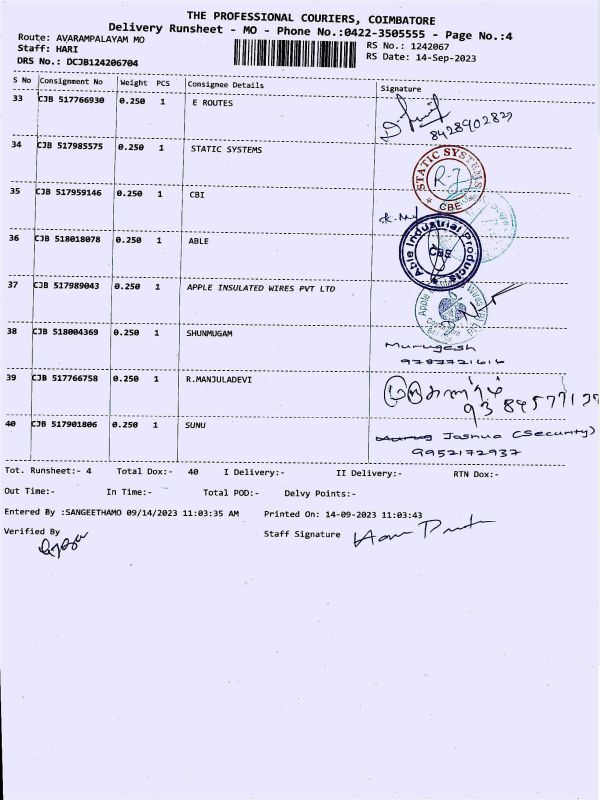 THE PROFESSIONAL COURIERS, COIMBATORE
Delivery Runsheet - MO - Phone No.:0422-3505555 - Page No.:4
Route: AVARAMPALAYAM MO
RS No.: 1242067
Staff: HARI
RS Date: 14-Sep-2023
DRS No.: DCJB124206704
S No Consignment No Weight PCS Consignee Details Signature
33 CJB 517766930 0.250 1 E ROUTES
8428902827
34 CJB 517985575 0.250 1 STATIC SYSTEMS
STATIC SYSTEMS
R.J
CBE
35 CJB 517959146 0.250 1 CBI
36 CJB 518018078 0.250 1 ABLE
Able Industrial Products
CBE
37 CJB 517989043 0.250 1 APPLE INSULATED WIRES PVT LTD
38 CJB 518004369 0.250 1 SHUNMUGAM
Murugesh
9787721616
39 CJB 517766758 0.250 1 R.MANJULADEVI
40 CJB 517901806 0.250 1 SUNU
Joshua (Security)
9952172937
Tot. Runsheet:- 4 Total Dox:- 40 I Delivery:- II Delivery:- RTN Dox:-
Out Time:- In Time:- Total POD:- Delvy Points:-
Entered By :SANGEETHAMO 09/14/2023 11:03:35 AM Printed On: 14-09-2023 11:03:43
Verified By
Staff Signature